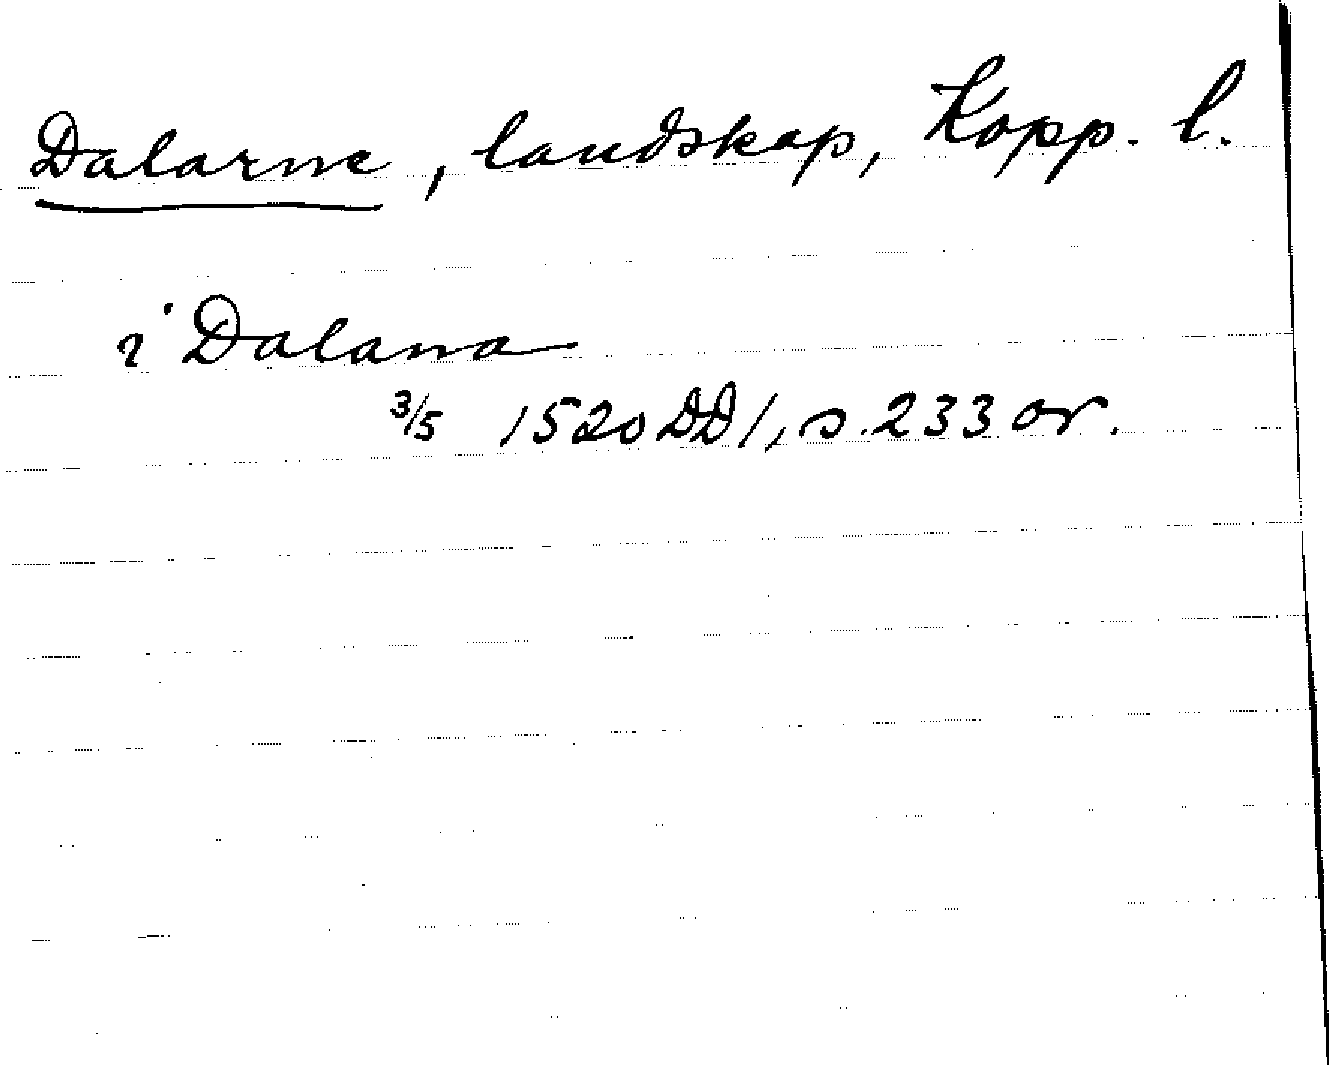 Dalarne, landskap, Kopp. l.
i Dalana
3/5 1520 DD 1, s. 233 or.